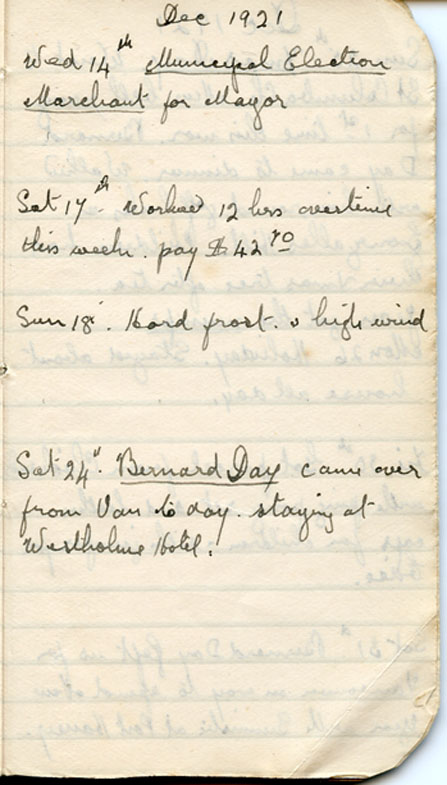 Dec 1921
Wed 14th Municipal Election
Marchant for Mayor
Sat 17th Worked 12 hrs overtime
this week. pay $42
Sun 18. Hard frost. & high wind
Sat 24th. Bernard Day came over
from Van to day. staying at
Westholme Hotel.